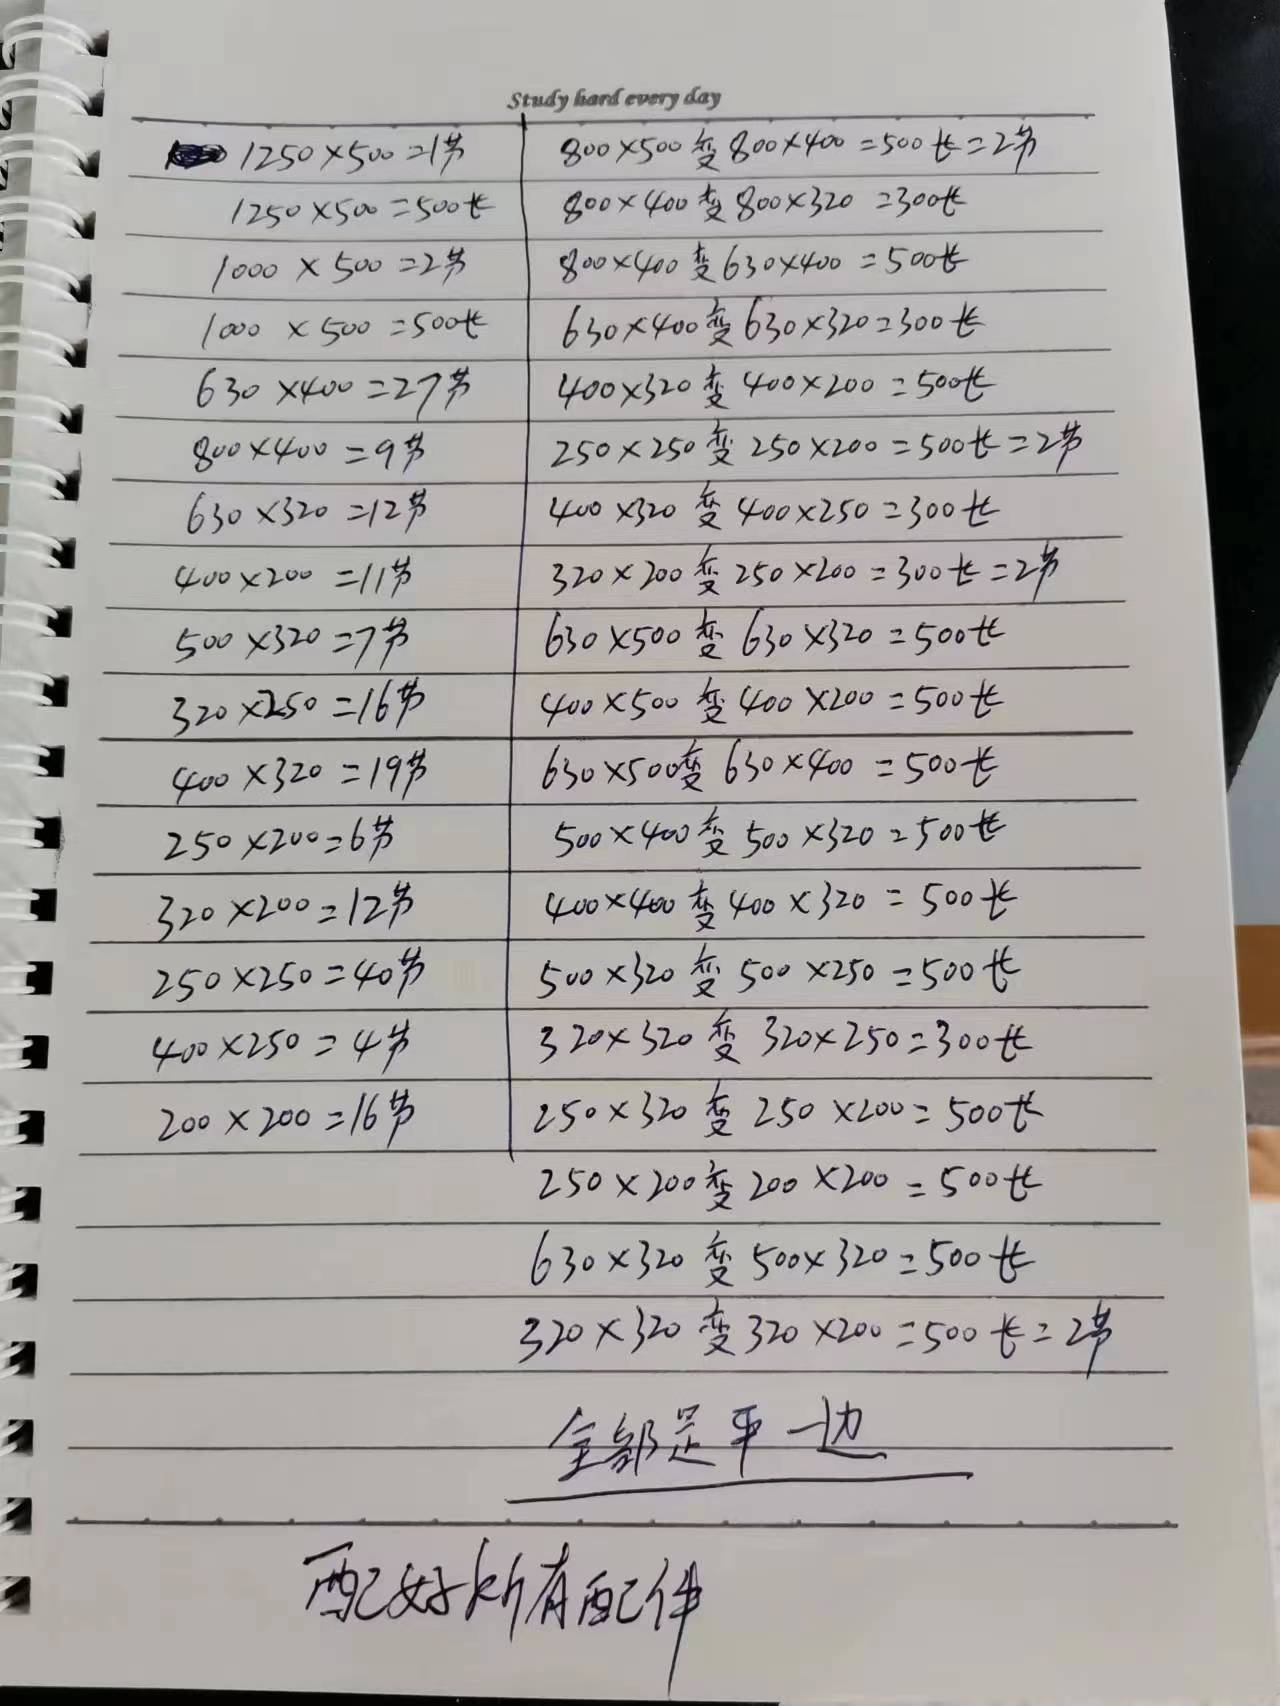 Study hard every day
1250×500=1节
1250×500=500长
1000×500=2节
1000×500=500长
630×400=27节
800×400=9节
630×320=12节
400×200=11节
500×320=7节
320×250=16节
400×320=19节
250×200=6节
320×200=12节
250×250=40节
400×250=4节
200×200=16节
800×500变800×400=500长=2节
800×400变800×320=300长
800×400变630×400=500长
630×400变630×320=300长
400×320变400×200=500长
250×250变250×200=500长=2节
400×320变400×250=300长
320×200变250×200=300长=2节
630×500变630×320=500长
400×500变400×200=500长
630×500变630×400=500长
500×400变500×320=500长
400×400变400×320=500长
500×320变500×250=500长
320×320变320×250=300长
250×320变250×200=500长
250×200变200×200=500长
630×320变500×320=500长
320×320变320×200=500长=2节
全部是平一边
配好所有配件